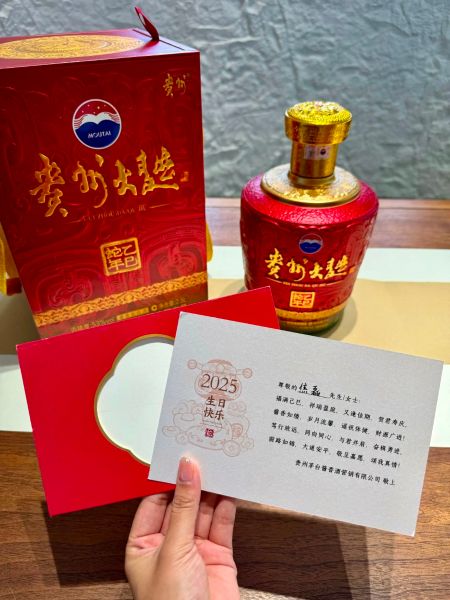 贵州
MOUTAI
贵州大麯
乙巳
蛇年
贵州大麯
乙巳
蛇年
2025
生日
快乐
尊敬的 先生(女士):
福满乙巳,祥瑞盈庭,又逢佳期,贺君寿庆。
酱香如缕,岁月流馨,谨祝体健,财源广进!
笃行致远,同向同心,与君并肩,奋楫勇进。
前路如锦,大道安平,敬呈嘉愿,颂我真情!
贵州茅台酱香酒营销有限公司 敬上